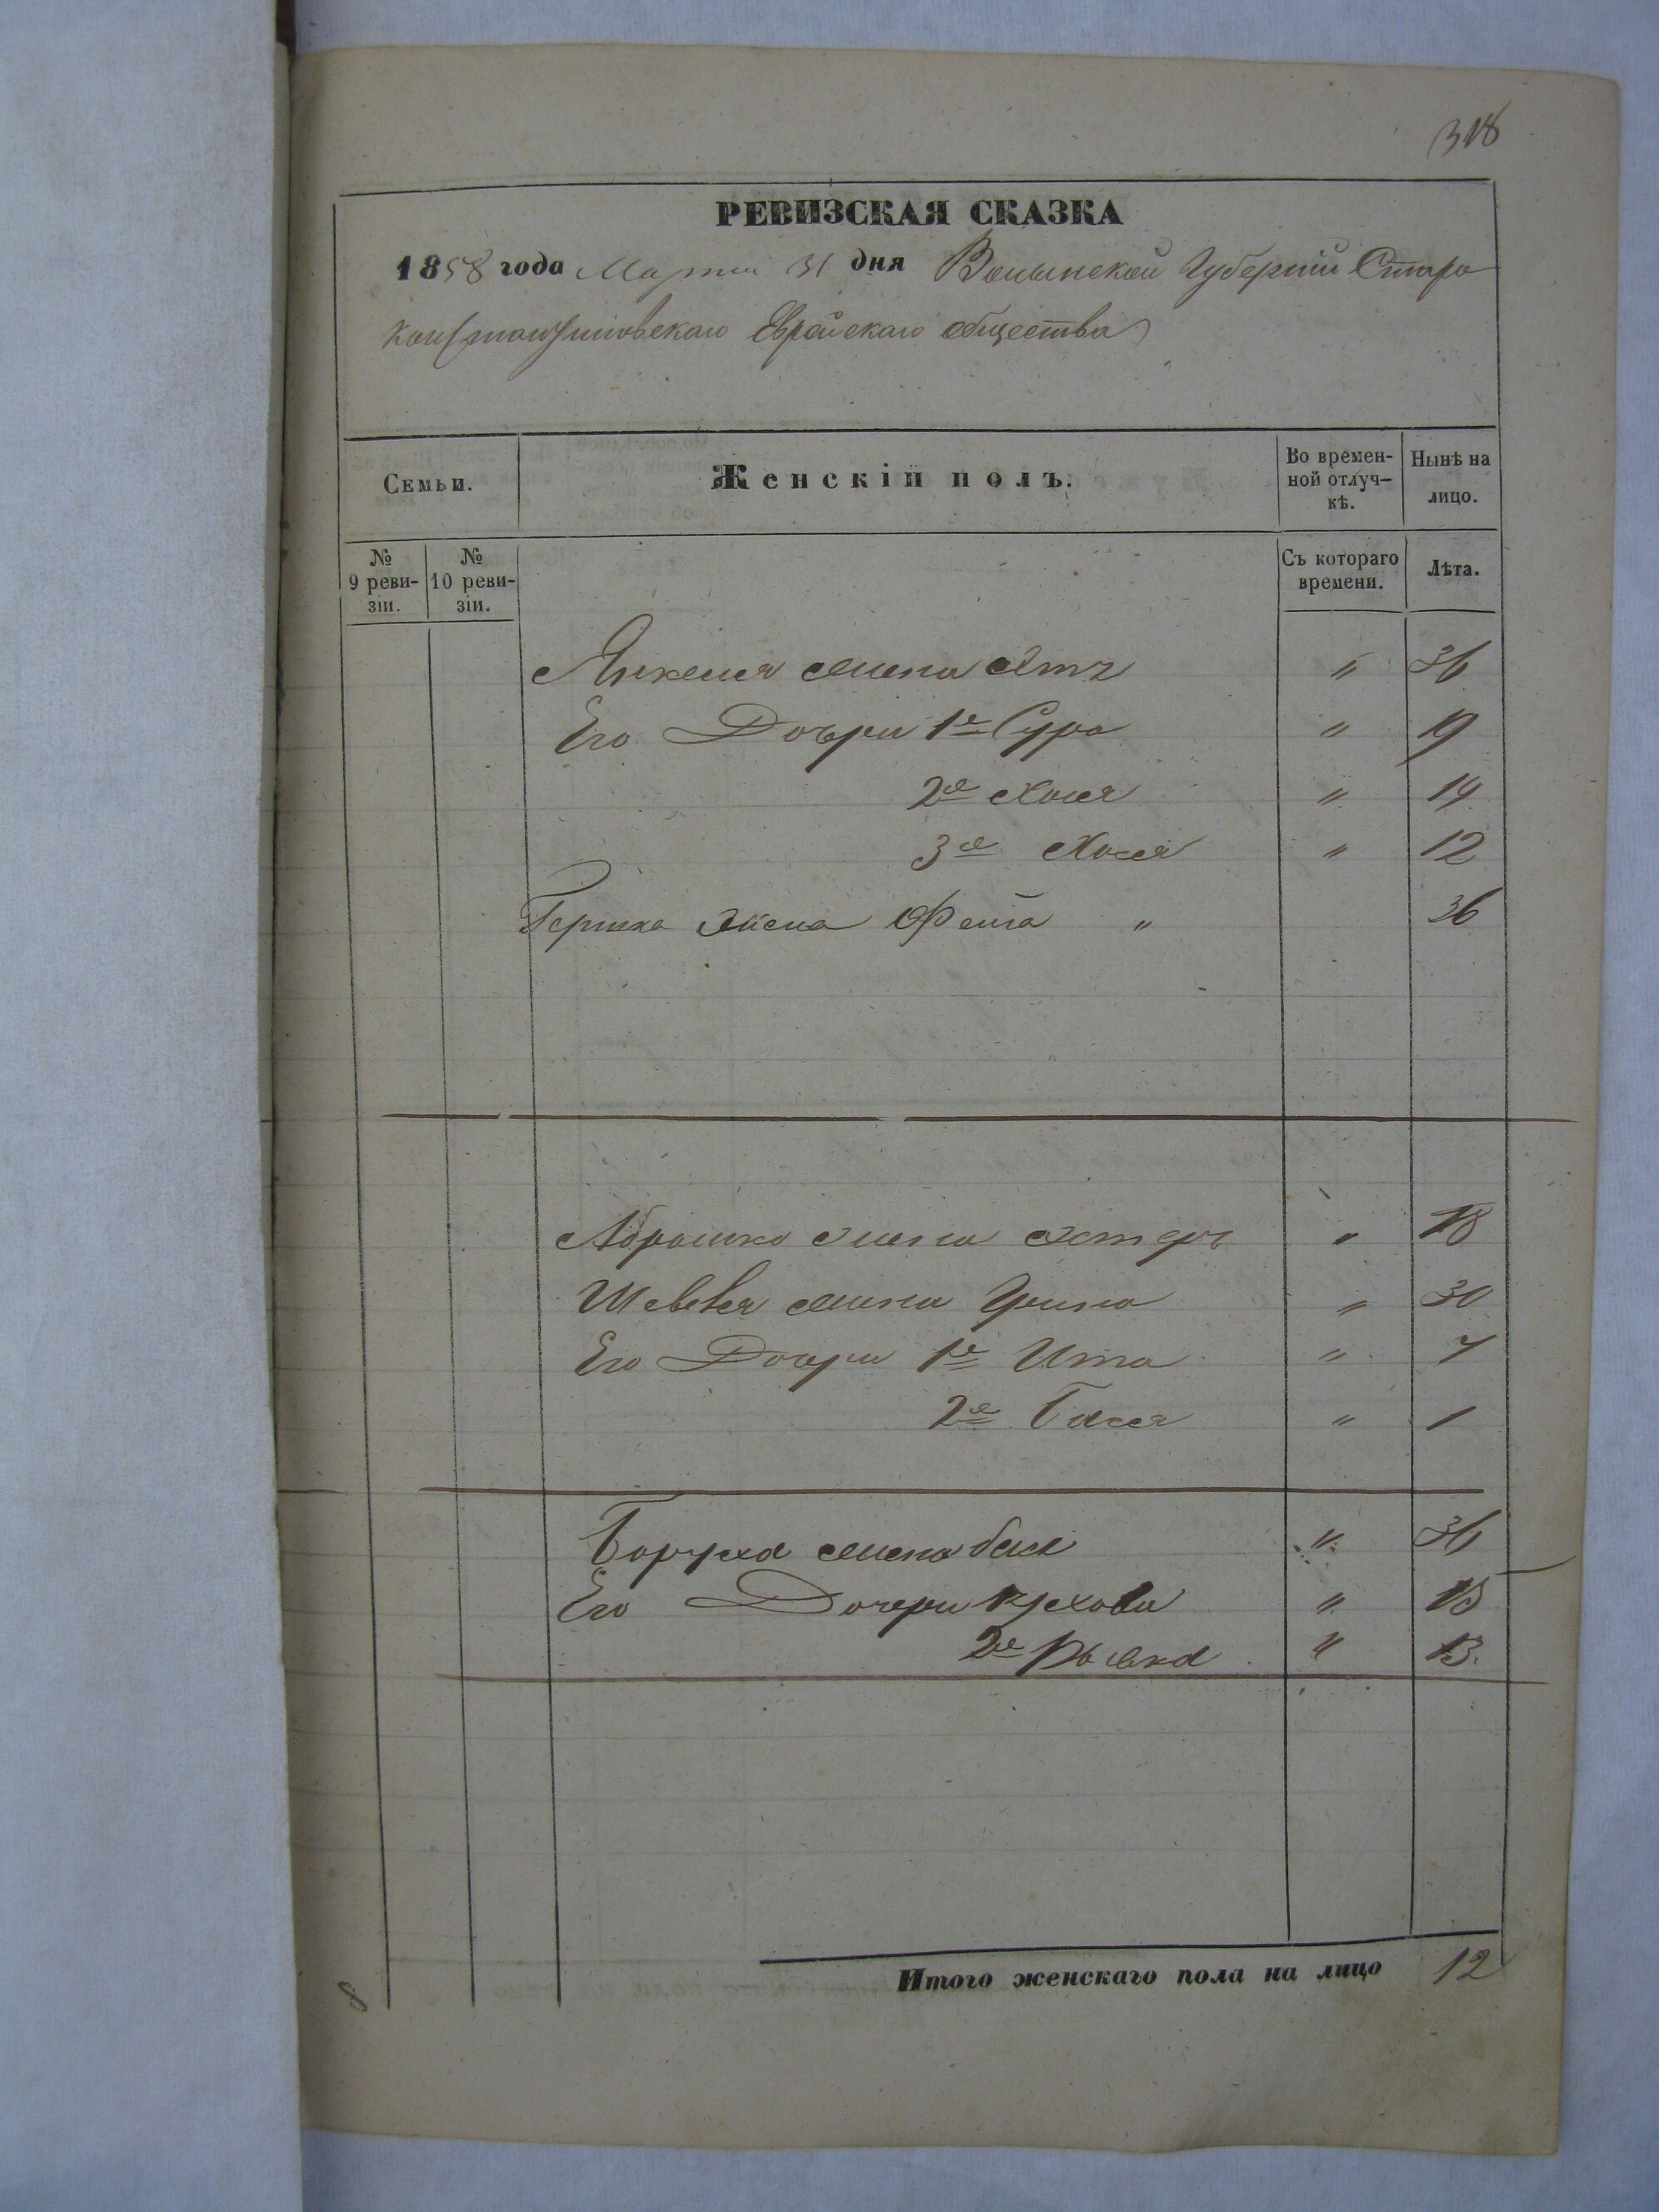 318
РЕВИЗСКАЯ СКАЗКА
1858 года Марта 31 дня Волынской Губернии Старо
константиновскаго Еврейскаго общества
Семьи.
Женскій полъ.
Во времен-
ной отлуч-
кѣ.
Нынѣ на
лицо.
№
9 реви-
зіи.
№
10 реви-
зіи.
Съ котораго
времени.
Лѣта.
Янкеля жена " 36
Его Дочери 1я Сура " 19
2я Хая " 14
3я " 12
Гершка жена Фейга " 36
Абрамко жена Эстеръ " 18
жена " 30
Его Дочери 1я Ита " 7
2я Бася " 1
Боруха жена " 36
Его Дочери " 15
2я Рывка " 13.
Итого женскаго пола на лицо 12
8